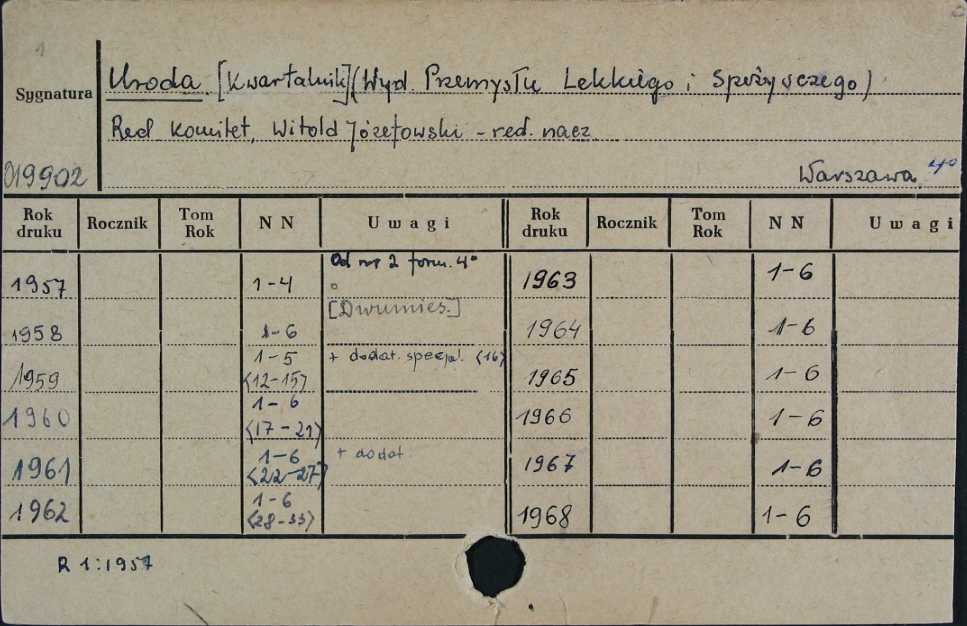 1
Sygnatura
Uroda [Kwartalnik] (Wyd. Przemysłu Lekkiego i Spożywczego)
Red Komitet, Witold Józefowski - red. nacz
019902
Warszawa 4°
Rok druku Rocznik Tom Rok N N Uwagi Rok druku Rocznik Tom Rok N N Uwagi
Od nr 2 form. 4°
1957 1-4 1963 1-6
[Dwumies.]
1958 1-6 1964 1-6
1-5 + dodat. specjal. <16>
1959 <12-15> 1965 1-6
1-6
1960 <17-21> 1966 1-6
1-6 + dodat
1961 <22-27> 1967 1-6
1-6
1962 <28-33> 1968 1-6
R 1:1957